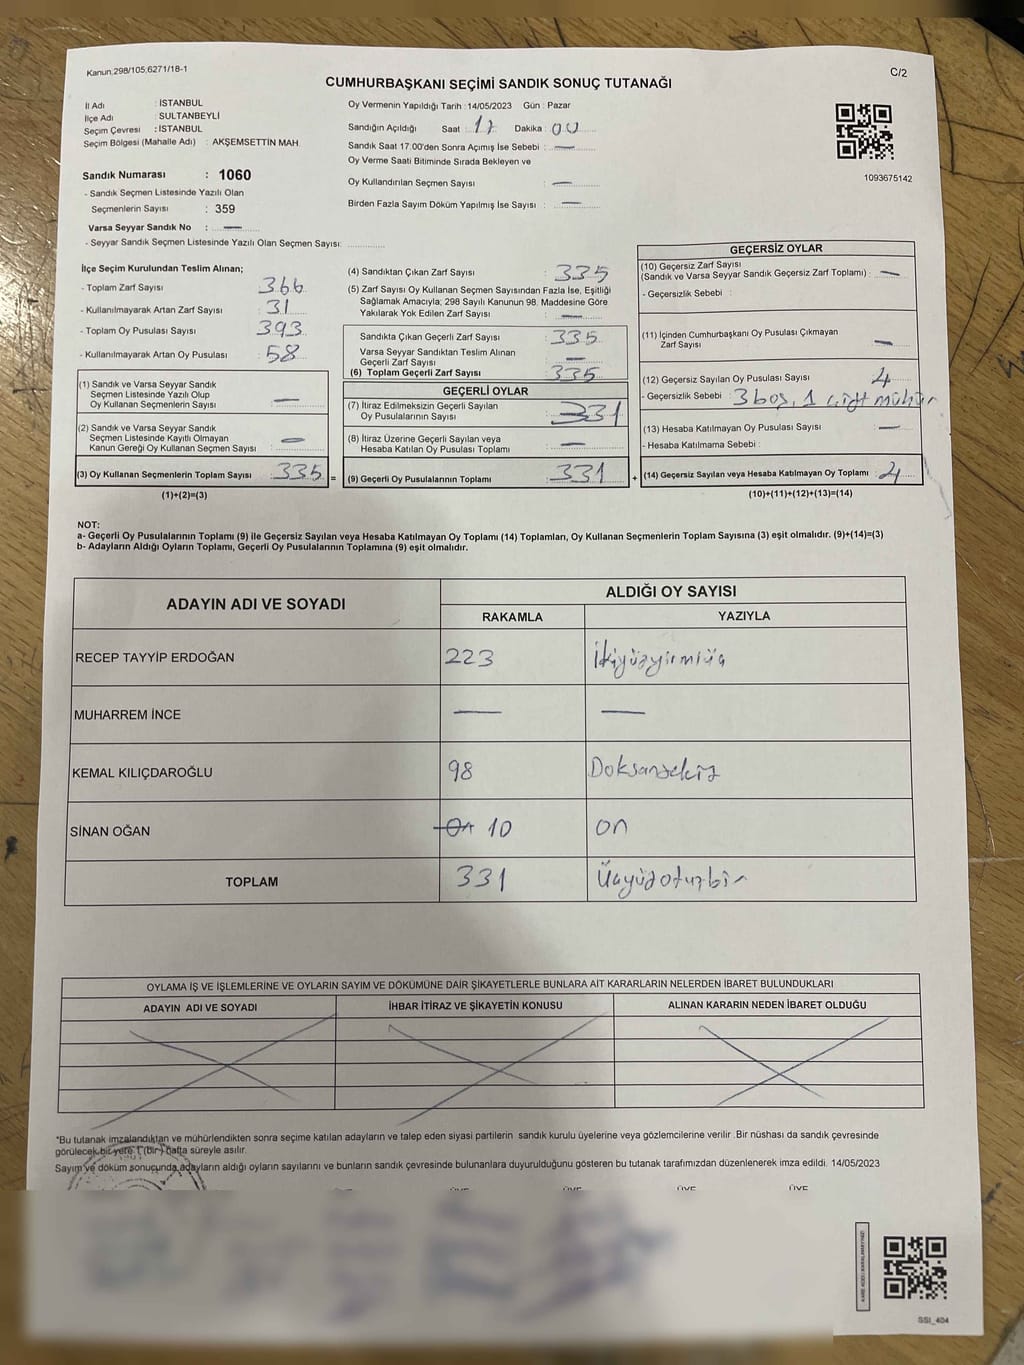 Kanun;298/105;6271/18-1
C/2
CUMHURBAŞKANI SEÇİMİ SANDIK SONUÇ TUTANAĞI
İl Adı : İSTANBUL
İlçe Adı : SULTANBEYLİ
Seçim Çevresi : İSTANBUL
Seçim Bölgesi (Mahalle Adı) : AKŞEMSETTİN MAH.
Sandık Numarası : 1060
- Sandık Seçmen Listesinde Yazılı Olan
Seçmenlerin Sayısı : 359
Varsa Seyyar Sandık No : —
- Seyyar Sandık Seçmen Listesinde Yazılı Olan Seçmen Sayısı:
Oy Vermenin Yapıldığı Tarih : 14/05/2023 Gün : Pazar
Sandığın Açıldığı Saat : 17 Dakika : 00
Sandık Saat 17:00'den Sonra Açımış İse Sebebi : —
Oy Verme Saati Bitiminde Sırada Bekleyen ve
Oy Kullandırılan Seçmen Sayısı : —
Birden Fazla Sayım Döküm Yapılmış İse Sayısı : —
1093675142
İlçe Seçim Kurulundan Teslim Alınan;
- Toplam Zarf Sayısı : 366
- Kullanılmayarak Artan Zarf Sayısı : 31
- Toplam Oy Pusulası Sayısı : 393
- Kullanılmayarak Artan Oy Pusulası : 58
(1) Sandık ve Varsa Seyyar Sandık
Seçmen Listesinde Yazılı Olup
Oy Kullanan Seçmenlerin Sayısı : —
(2) Sandık ve Varsa Seyyar Sandık
Seçmen Listesinde Kayıtlı Olmayan
Kanun Gereği Oy Kullanan Seçmen Sayısı : —
(3) Oy Kullanan Seçmenlerin Toplam Sayısı : 335 =
(1)+(2)=(3)
(4) Sandıktan Çıkan Zarf Sayısı : 335
(5) Zarf Sayısı Oy Kullanan Seçmen Sayısından Fazla İse, Eşitliği
Sağlamak Amacıyla; 298 Sayılı Kanunun 98. Maddesine Göre
Yakılarak Yok Edilen Zarf Sayısı : —
Sandıkta Çıkan Geçerli Zarf Sayısı : 335
Varsa Seyyar Sandıktan Teslim Alınan
Geçerli Zarf Sayısı : —
(6) Toplam Geçerli Zarf Sayısı : 335
GEÇERLİ OYLAR
(7) İtiraz Edilmeksizin Geçerli Sayılan
Oy Pusulalarının Sayısı : 331
(8) İtiraz Üzerine Geçerli Sayılan veya
Hesaba Katılan Oy Pusulası Toplamı : —
(9) Geçerli Oy Pusulalarının Toplamı : 331 +
GEÇERSİZ OYLAR
(10) Geçersiz Zarf Sayısı
(Sandık ve Varsa Seyyar Sandık Geçersiz Zarf Toplamı) : —
- Geçersizlik Sebebi :
(11) İçinden Cumhurbaşkanı Oy Pusulası Çıkmayan
Zarf Sayısı : —
(12) Geçersiz Sayılan Oy Pusulası Sayısı : 4
- Geçersizlik Sebebi : 3 boş, 1 çift mühür
(13) Hesaba Katılmayan Oy Pusulası Sayısı : —
- Hesaba Katılmama Sebebi :
(14) Geçersiz Sayılan veya Hesaba Katılmayan Oy Toplamı : 4
(10)+(11)+(12)+(13)=(14)
NOT:
a- Geçerli Oy Pusulalarının Toplamı (9) ile Geçersiz Sayılan veya Hesaba Katılmayan Oy Toplamı (14) Toplamları, Oy Kullanan Seçmenlerin Toplam Sayısına (3) eşit olmalıdır. (9)+(14)=(3)
b- Adayların Aldığı Oyların Toplamı, Geçerli Oy Pusulalarının Toplamına (9) eşit olmalıdır.
ADAYIN ADI VE SOYADI
ALDIĞI OY SAYISI
RAKAMLA YAZIYLA
RECEP TAYYİP ERDOĞAN 223 İkiyüzyirmiüç
MUHARREM İNCE — —
KEMAL KILIÇDAROĞLU 98 Doksansekiz
SİNAN OĞAN 10 on
TOPLAM 331 Üçyüzotuzbir
OYLAMA İŞ VE İŞLEMLERİNE VE OYLARIN SAYIM VE DÖKÜMÜNE DAİR ŞİKAYETLERLE BUNLARA AİT KARARLARIN NELERDEN İBARET BULUNDUKLARI
ADAYIN ADI VE SOYADI İHBAR İTİRAZ VE ŞİKAYETİN KONUSU ALINAN KARARIN NEDEN İBARET OLDUĞU
*Bu tutanak imzalandıktan ve mühürlendikten sonra seçime katılan adayların ve talep eden siyasi partilerin sandık kurulu üyelerine veya gözlemcilerine verilir .Bir nüshası da sandık çevresinde
görülecek bir yere 1 (bir) hafta süreyle asılır.
Sayım ve döküm sonucunda adayların aldığı oyların sayılarını ve bunların sandık çevresinde bulunanlara duyurulduğunu gösteren bu tutanak tarafımızdan düzenlenerek imza edildi. 14/05/2023
ÜYE ÜYE ÜYE ÜYE
SSI_404